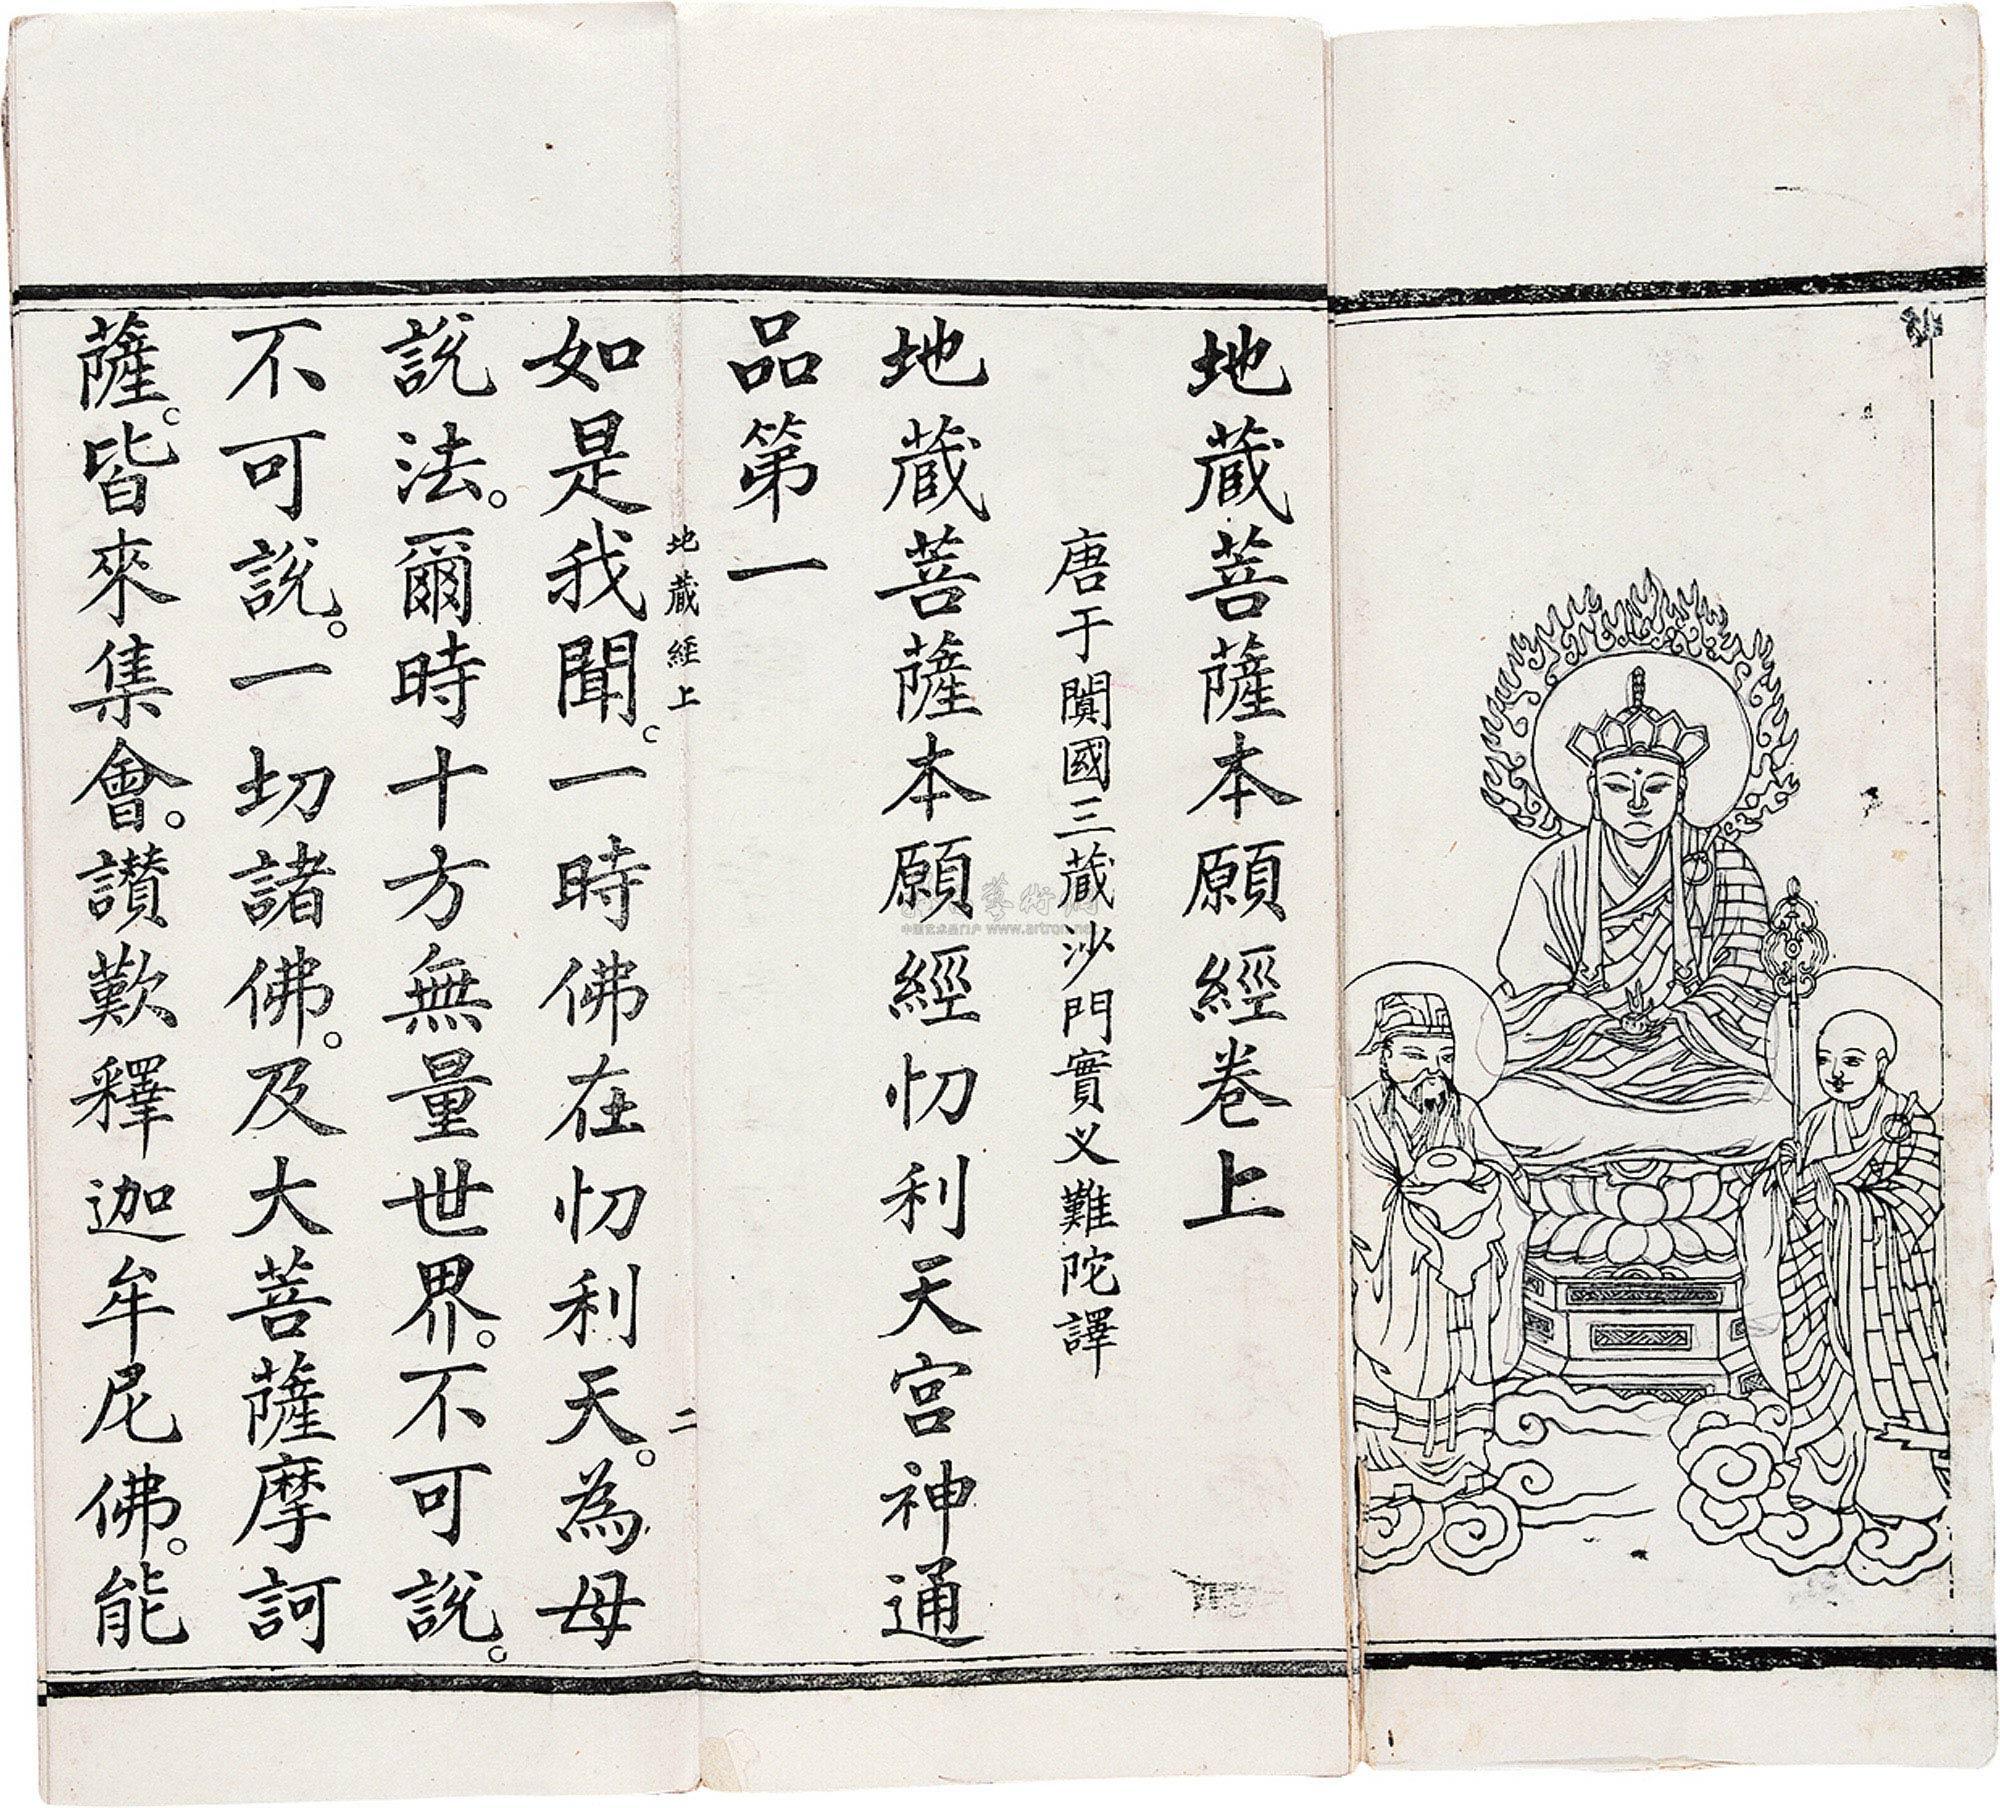 地藏菩薩本願經卷上
唐于闐國三藏沙門實义難陀譯
地藏菩薩本願經忉利天宮神通
品第一
地藏經上
二
如是我聞。一時佛在忉利天。為母
說法。爾時十方無量世界。不可說。
不可說。一切諸佛。及大菩薩摩訶
薩。皆來集會。讚歎釋迦牟尼佛。能
www.artron.net